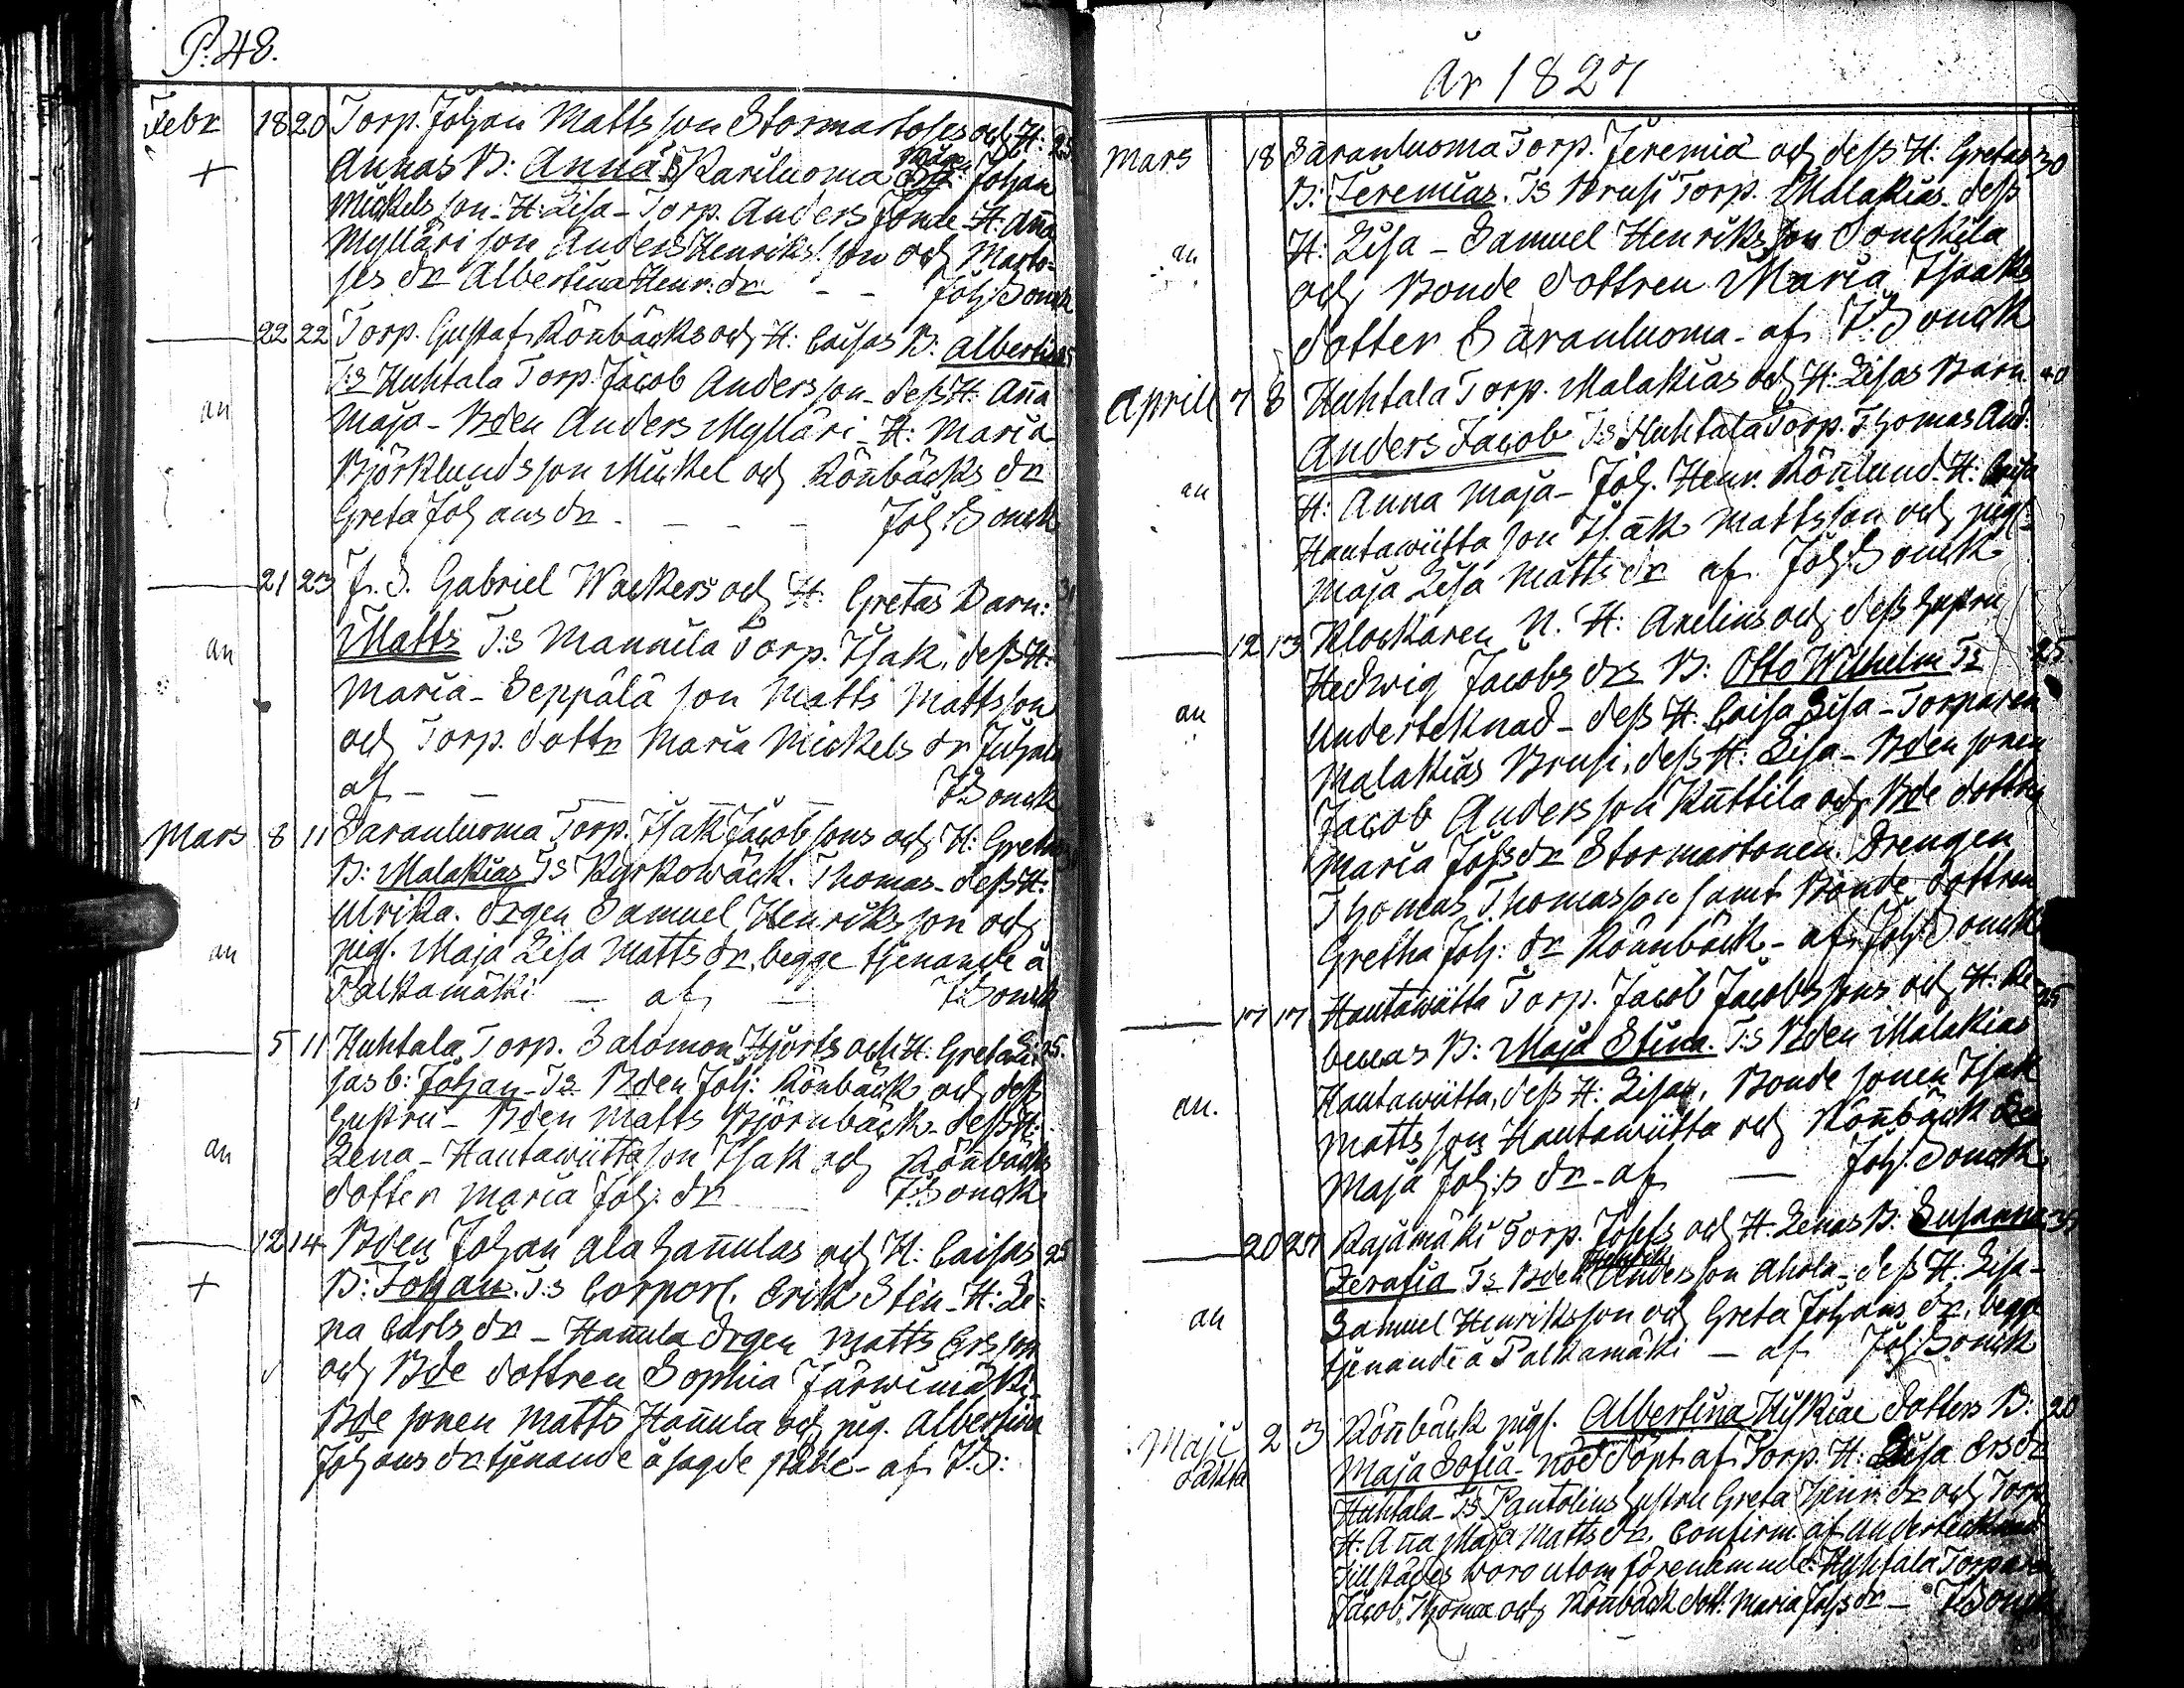 P. 48.
Febr 18 20 Torp. Johan Mattsson Stormartoses och H: 25
+ Annas B: Anna. Ts Kariluoma Johan
Mickelsson - H: Lisa - Torp. Anders H: Aña
Mylläri son Anders Henriksson och Marto-
ses dr Albertina Henr: dr - - Joh: Bonck
— 22 22 Torp. Gustaf Röñbäcks och H: Caisas B: Albertina
an T:s Huhtala Torp. Jacob Andersson - dess H: Aña
Maja - Bden Anders Mylläri - H: Maria
Björklunds son Mickel och Röñbäcks dr
Greta Johansdr - - - Joh: Bonck
— 21 23 F. S. Gabriel Wackers och H: Gretas Barn: 31
an Matts T:s Mannila Torp. Isak, dess H:
Maria - Seppälä son Matts Mattsson
och Torp. dottr Maria Mickels dr
af - - J. Bonck
Mars 8 11 Saranluoma Torp. Isak Jacobssons och H: Gretas
B: Malakias Ts Kyrkowäck. Thomas - dess H:
Ulrika. drgen Samuel Henriksson och
an pigs. Maja Lisa Mattsdr, begge tjenande å
Palkamäki - af - J. Bonck
— 5 11 Huhtala Torp. Salomon Hjorts och H: Greta Li- 25.
sas b: Johan - Ts Bden Joh: Röñbäck och dess
hustru - Bden Matts Björnbäck - dess H:
an Lena - Hautawiitta son Isak och Röñbäcks
dotter Maria Joh: dr J: Bonck
— 12 14 Bden Johan Ala Hañulas och H: Caisas 25
+ B: Johan. T:s Corporl. Erik Stén - H: Le-
na Carlsdr - Hañula drgen Matts Ersson
och Bde dottren Sophia Järwimäki -
Bde sonen Matts Hañula och pig. Albertina
Johansdr tjenande å sagde ställe - af J. B:
År 1827
Mars 18 Saranluoma Torp. Jeremiæ och dess H: Gretas 30
B: Jeremias. Ts Brusi Torp. Malakias - dess
an H: Lisa - Samuel Henriksson Sonckila
och Bonde dottren Maria Isaaks
dotter Saranluoma - af J: Bonck
Aprill 7 8 Huhtala Torp. Malakias och H: Lisas Barn 40
Anders Jacob Ts Huhtala Torp. Thomas And:
an H: Anna Maja - Joh. Henr. Rönlund - H: Caisa
Hautawiitta son Isak Mattsson och pigs.
Maja Lisa Mattsdr af Joh: Bonck
— 12 13 Klockaren N. H: Arelins och dess hustru
Hedwig Jacobsdrs B: Otto Wilhelm Ts 25
an Undertecknad - dess H: Caisa Lisa - Torparen
Malakias Brusi, dess H: Lisa - Bden sonen
Jacob Andersson Kuttila och Bde dottren
Maria Johsdr Stormartonen. Drengen
Thomas Thomasson samt Bonde dottren
Gretha Joh: dr Rönnbäck - af Joh: Bonck
— 17 17 Hautawiitta Torp. Jacob Jacobssons och H: Re- 25
beccas B: Maja Stina. T:s Bden Malakias
an. Hautawiitta, dess H: Lisa, Bonde sonen Isak
Mattsson Hautawiitta och Röñbäck den
Maja Joh:s dr - af — Joh: Bonck
— 20 27 Rajamäki Torp. Josefs och H: Lenas B. Susanna 39
Serafia Ts Bden Henrik Andersson Ahola - dess H. Lisa -
an Samuel Henriksson och Greta Johansdr, begge
tjenande å Palkamäki - af Joh: Bonck
Maji 2 3 Röñbäck pigs. Albertina Hiskiae dotters B: 20
oäkta Maja Sofia - nöd döpt af Torp. H: Lisa Ersdr
Huhtala - Ts Pantolins hustru Greta Henr. dr och Torp.
H: Aña Maja Mattsdr, Confirm. af undertecknad
Tillstädes woro utom förenämnde: Huhtala Torparen
Jacob Thomæ och Röñbäck dott. Maria Johsdr - J. Bonck